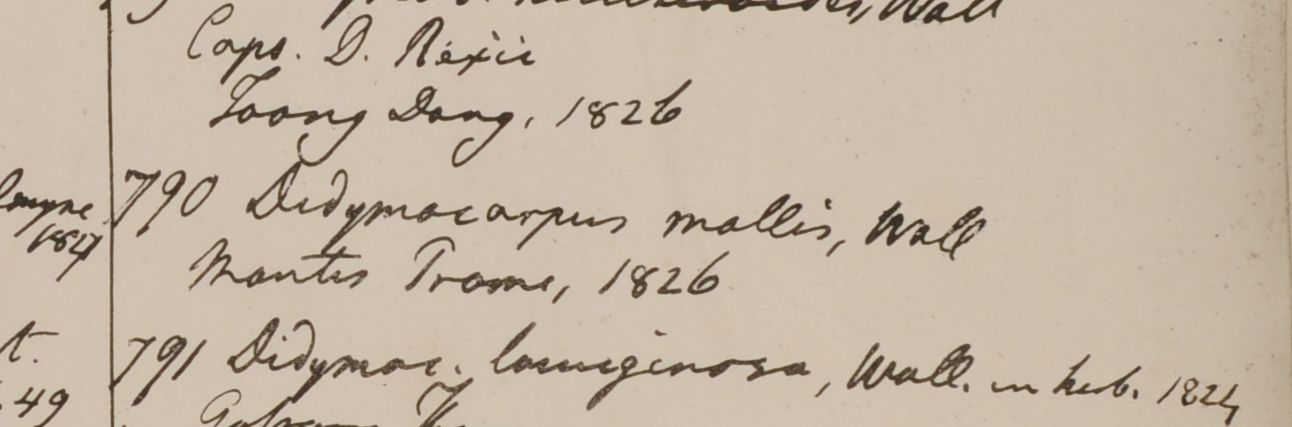 Wall
Caps. D. Rexii
Toong Dong, 1826
790 Didymocarpus mollis, Wall
1847
Montes Prome, 1826
791 Didymoc. lanuginosa, Wall. in herb. 1824
t.
49